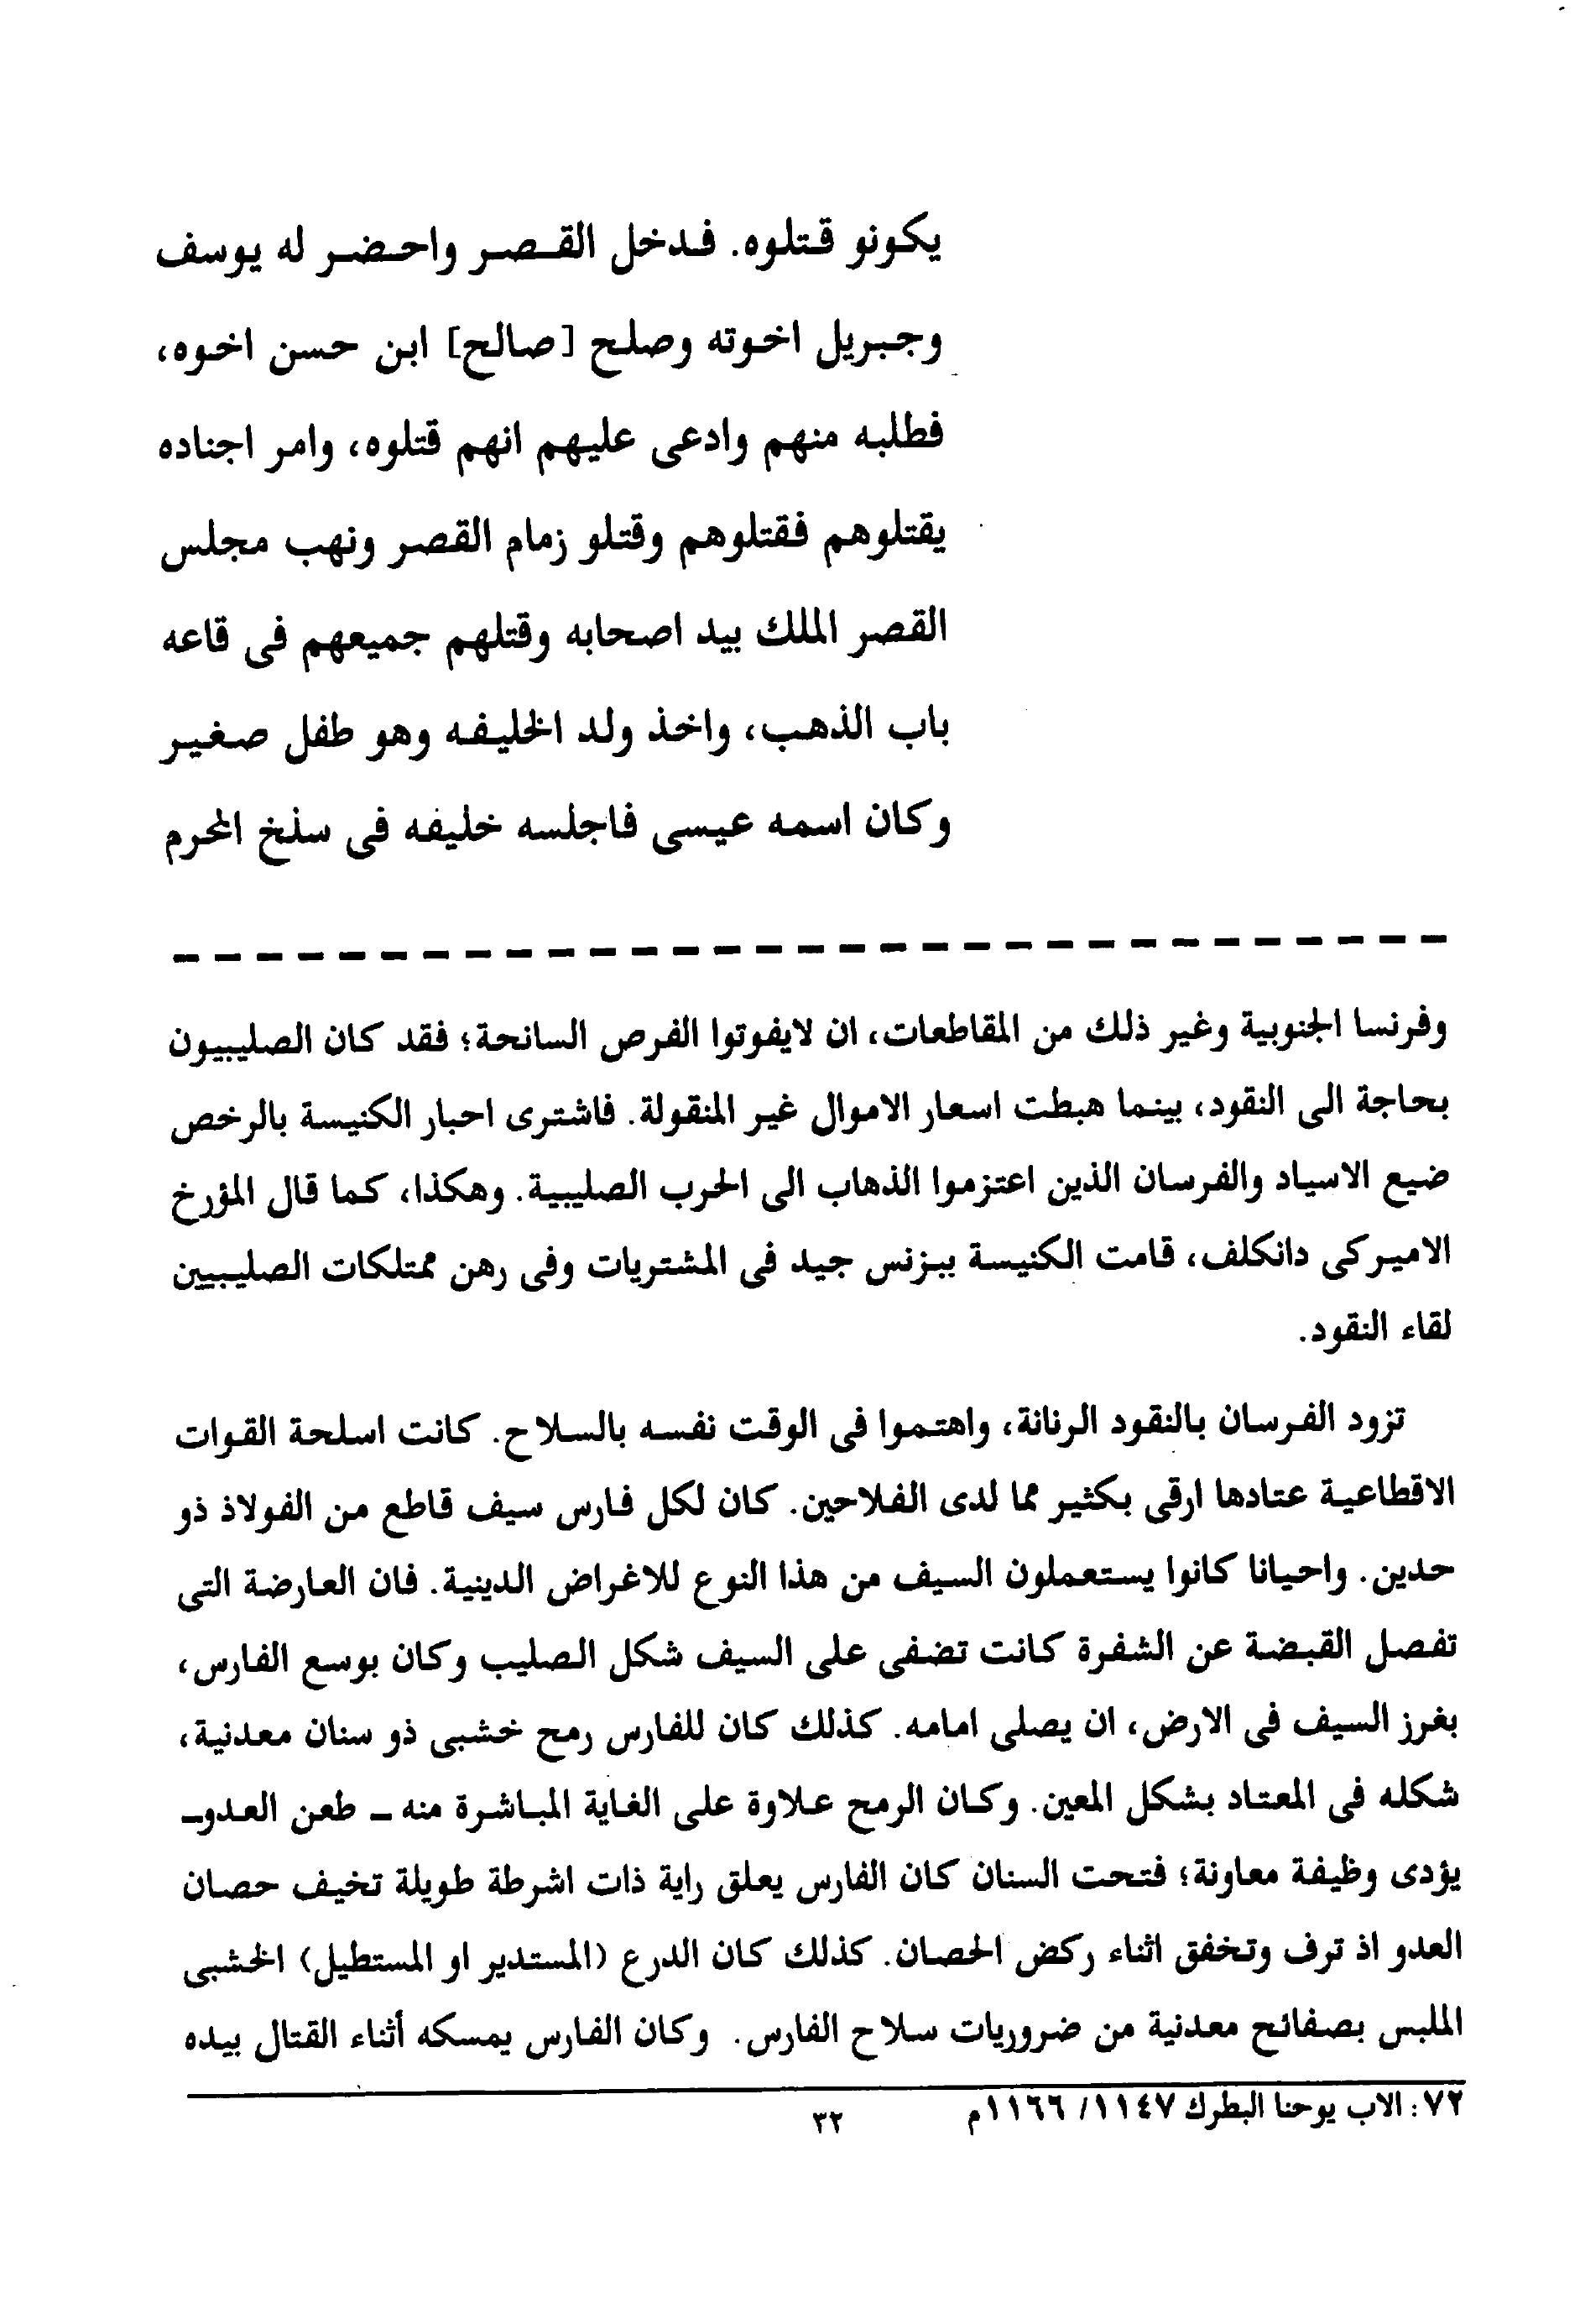 يكونو قتلوه. فدخل القصر واحضر له يوسف
وجبريل اخوته وصلح [صالح] ابن حسن اخوه،
فطلبه منهم وادعى عليهم انهم قتلوه، وامر اجناده
يقتلوهم فقتلوهم وقتلو زمام القصر ونهب مجلس
القصر الملك بيد اصحابه وقتلهم جميعهم فى قاعه
باب الذهب، واخذ ولد الخليفه وهو طفل صغير
وكان اسمه عيسى فاجلسه خليفه فى سلخ المحرم
وفرنسا الجنوبية وغير ذلك من المقاطعات، ان لايفوتوا الفرص السانحة؛ فقد كان الصليبيون
بحاجة الى النقود، بينما هبطت اسعار الاموال غير المنقولة. فاشترى احبار الكنيسة بالرخص
ضيع الاسياد والفرسان الذين اعتزموا الذهاب الى الحرب الصليبية. وهكذا، كما قال المؤرخ
الاميركى دانكلف، قامت الكنيسة ببزنس جيد فى المشتريات وفى رهن ممتلكات الصليبيين
لقاء النقود.
تزود الفرسان بالنقود الرنانة، واهتموا فى الوقت نفسه بالسلاح. كانت اسلحة القوات
الاقطاعية عتادها ارقى بكثير مما لدى الفلاحين. كان لكل فارس سيف قاطع من الفولاذ ذو
حدين. واحيانا كانوا يستعملون السيف من هذا النوع للاغراض الدينية. فان العارضة التى
تفصل القبضة عن الشفرة كانت تضفى على السيف شكل الصليب وكان بوسع الفارس،
بغرز السيف فى الارض، ان يصلى امامه. كذلك كان للفارس رمح خشبى ذو سنان معدنية،
شكله فى المعتاد بشكل المعين. وكان الرمح علاوة على الغاية المباشرة منه ـ طعن العدوـ
يؤدى وظيفة معاونة؛ فتحت السنان كان الفارس يعلق راية ذات اشرطة طويلة تخيف حصان
العدو اذ ترف وتخفق اثناء ركض الحصان. كذلك كان الدرع (المستدير او المستطيل) الخشبى
الملبس بصفائح معدنية من ضروريات سلاح الفارس. وكان الفارس يمسكه أثناء القتال بيده
٧٢: الاب يوحنا البطرك ١١٤٧/ ١١٦٦م
٣٢